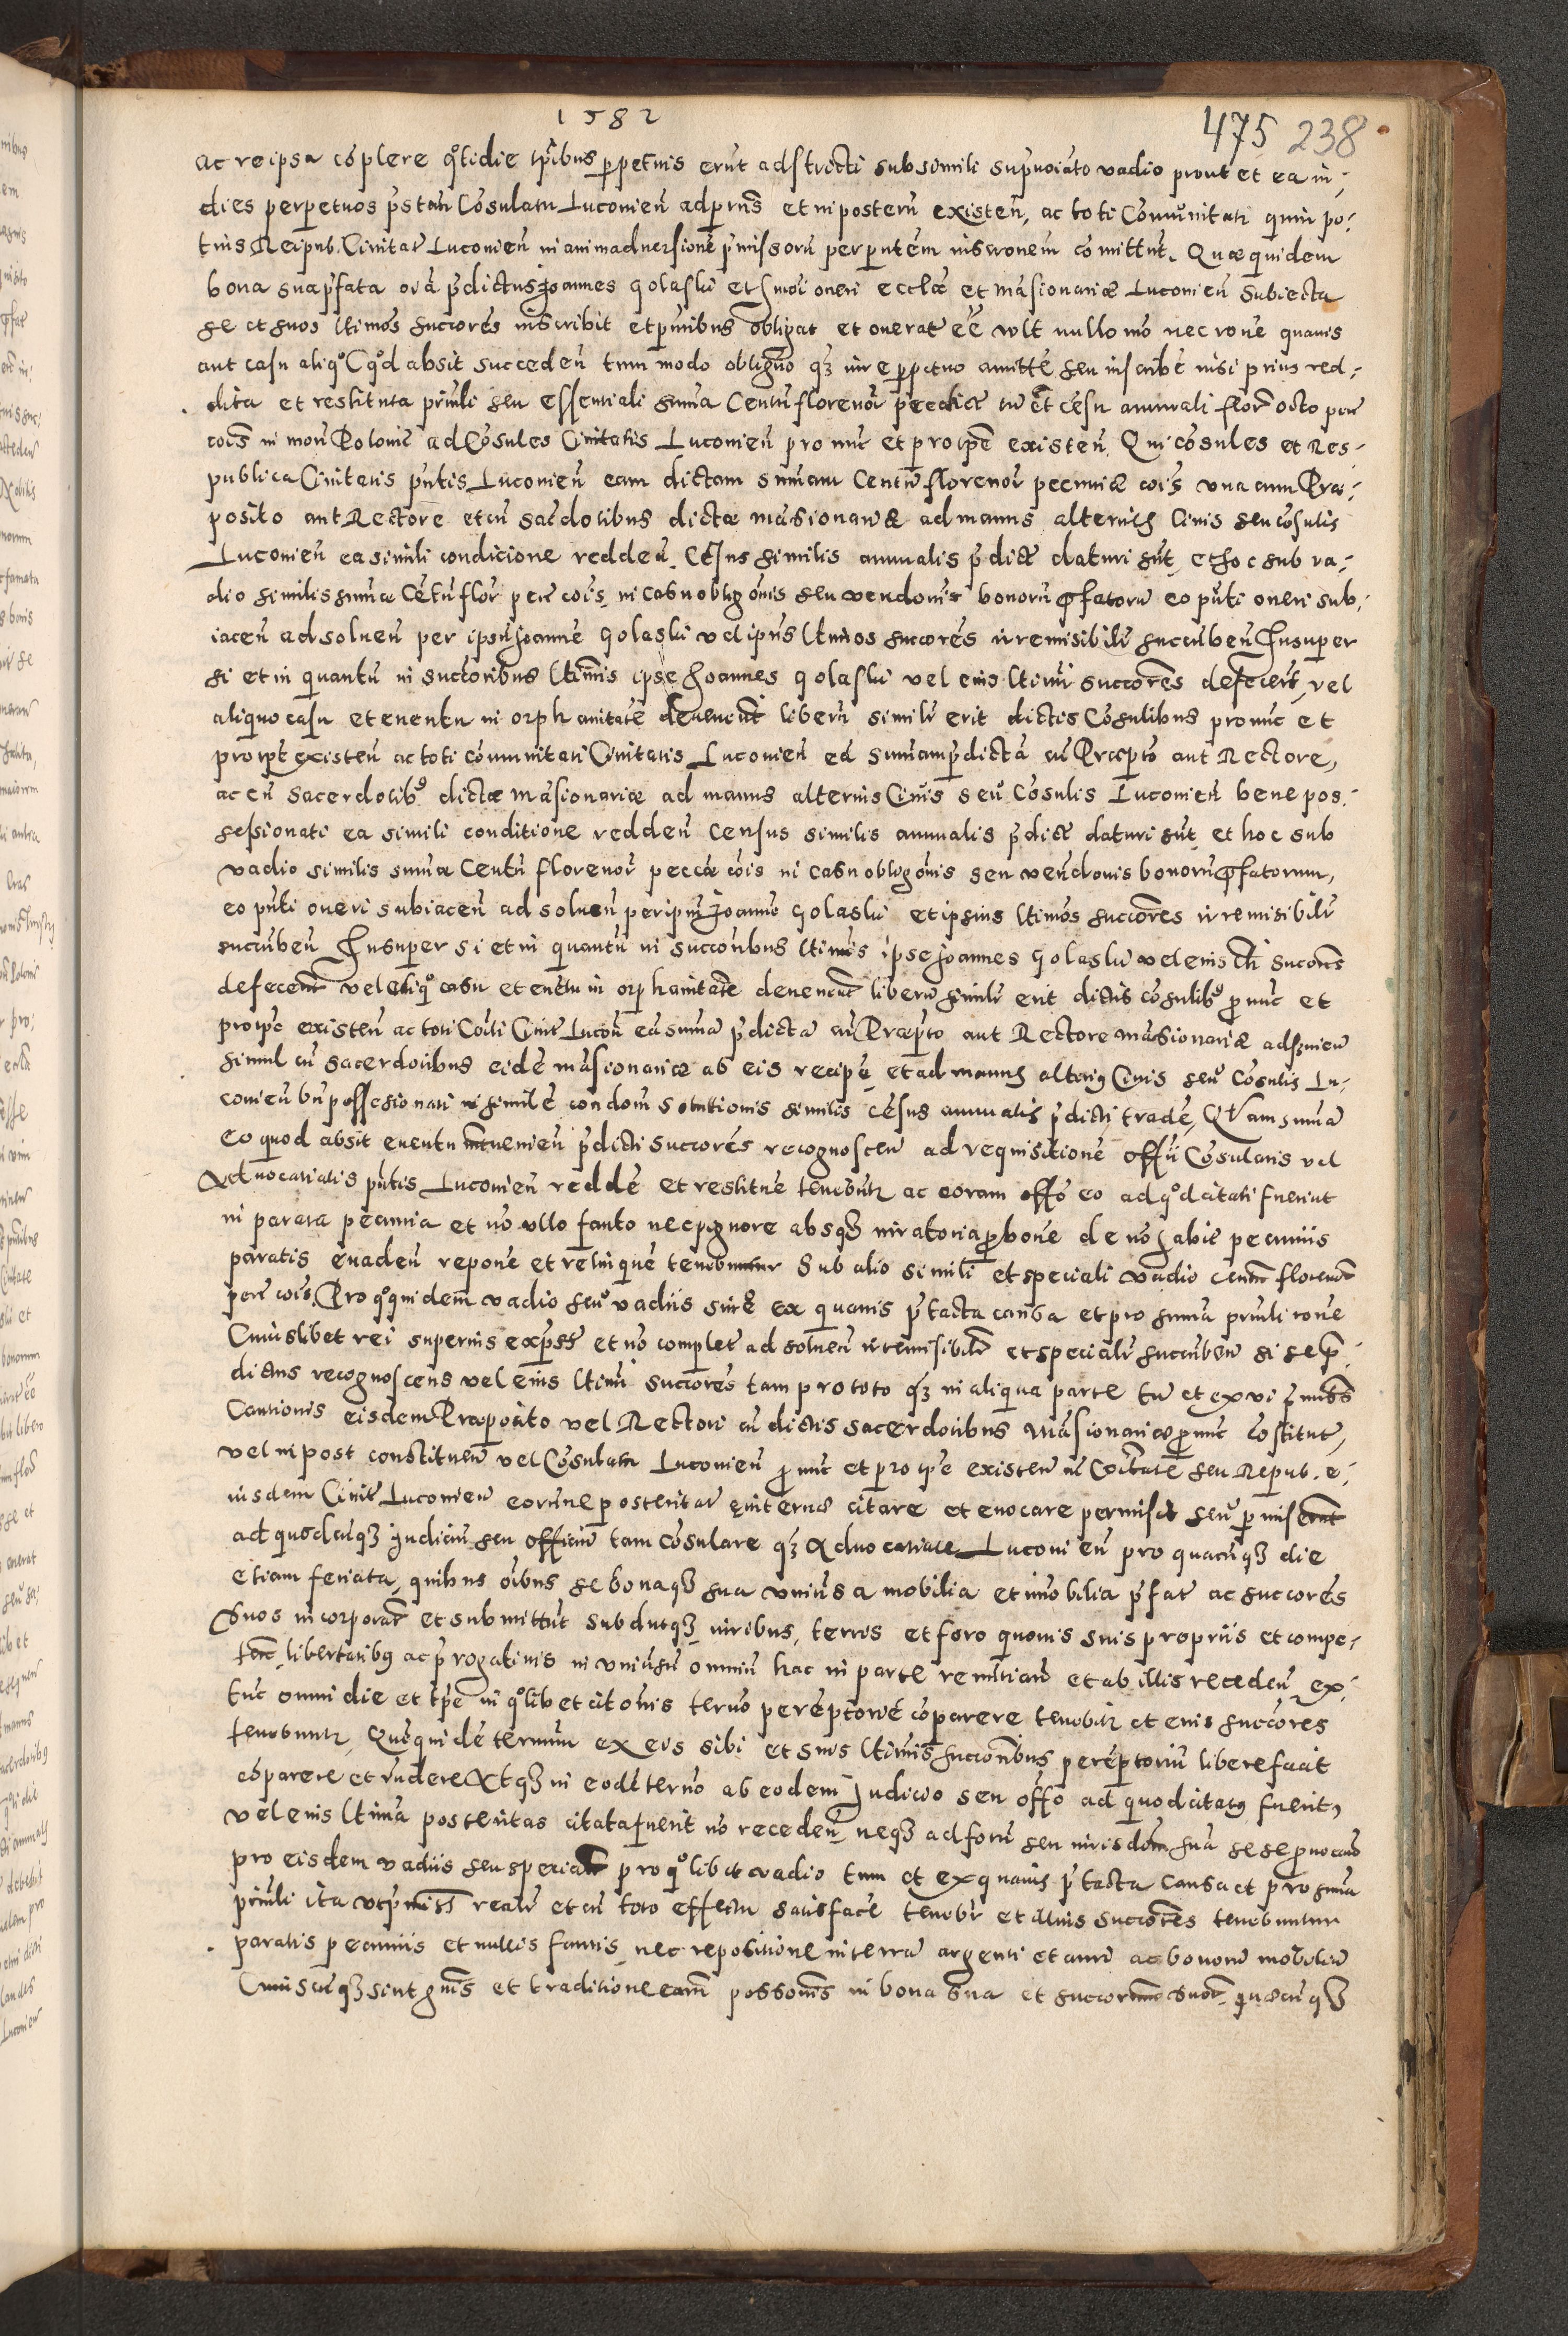 1582
475 238
ac reipsa cõplere qotidie tp̃ribus ꝑpetuis erũt adstricti sub simili sup̃noĩato vadio prout et ea in-
dies perpetuos p̃stan Cõsulatu Luconieñ ad p̃ñs et in posterũ existeñ, ac toti Comũnitati quin po-
tius Reipub. Civitat Luconieñ in animadversionẽ p̃missorũ per pñtem inscrõnem cõmittũt. Quæ quidem
bona sua p̃fata oĩa p̃dictus Joannes Golaski et hmõi oneri ecclæ et mãsionariæ Luconieñ subiecta
se et suos ltimos succores inscribit et p̃ntibus obligat et onerat eẽ vult nullo mõ nec rõne quavis
aut casu aliqo Cqod absit succedeñ tum modo obligño qꝫ iure ꝑpetuo amittẽ seu inscribẽ nisi prius red-
dita et restituta prinli seu essentiali suma Centũ florenor pecc̃ dict cũ cẽsu annuali flor octo pcc̃
cois in moñ Poloniẽ ad Cõsules Civitatis Luconieñ pro nũc et pro tp̃e existeñ. Qui cõsules et Res-
publica Civitatis pñtis Luconieñ eam dictam sumam Centũ florenor pecuniæ cois una cum Præ-
posito aut Rectore et cũ sacdotibus dictæ mãsionariæ ad manus alterius civis seu cõsulis
Luconieñ ea simili condicione reddeñ. Cẽsus similis annualis p̃dict daturi sũt, et hoc sub va-
dio similis sumæ Cẽtũ flor pcc̃ cois, in casu obligõnis seu vendonis bonorũ p̃fatorũ eo pñti oneri sub-
iaceñ ad solueñ per ipsũ Joannẽ Golaski vel ipsius ltimos succores irremisibilr succũbeñ Insuper
si et in quantũ in succoribus ltimis ipse Joannes Golaski vel eius ltimi succores defecerĩt, vel
aliquo casu et eventu in orphanitatẽ deueneriĩt liberũ simili erit dictis Cõsulibus pro nũc et
pro tp̃e existeñ ac toti cõmunitati Civitatis Luconieñ eã sumam p̃dictã cũ Præpto aut Rectore,
ac cũ sacerdotibo dictæ mãsionariæ ad manus alterius Civis seu Cõsulis Luconieñ bene pos-
sessionati ea simili conditione reddeñ Census similis annualis p̃dict daturi sũt, et hoc sub
vadio similis sumæ Centũ florenor peccæ cois in casu obligõnis seu vendonis bonorũ p̃fatorum,
eo pñti oneri subiaceñ ad solueñ per ipm̃ Joannẽ Golaski et ipsius ltimos succores irremisibilr
succũbeñ Insuper si et in quantũ in succoribus ltimis ipse Joannes Golaski vel eius ltĩ succores
defecerint vel aliqo casu et evẽtu in orphanitatẽ deuenerint liberũ simili erit dictis cõsulibo pro nũc et
pro tp̃e existeñ ac toti Cõiti Civit Lucoñ eã sumã p̃dictã cũ Præpto aut Rectore mãsionariæ
simul cũ sacerdotibus eidẽ mãsionariæ ab eis recipẽ, et ad manus alterius Civis seu Cõsulis Lu-
conieñ bñ possesionati in similẽ condom solutionis similis cẽsus annualis p̃dicti tradẽ, Quam sumã
eo quod absit eventu p̃dicti succores recognosceñ ad requisitionẽ offii Cõsularis vel
Advocatialis pñtis Luconieñ reddẽ et restituẽ tenebũtr ac coram offo eo ad qod citati fuerint
in parata pecunia et nõ ullo fanto nec pignore absqꝫ iuratoria ꝓbone de nõ habiẽ pecuniis
paratis evadeñ reponẽ et relinquẽ tenebuntur sub alio simili et speciali vadio centũ florenor
pcc̃ cois. Pro qo quidem vadio seu vadiis sive ex quavis p̃tacta causa et pro suma prinli rõne
Cuiuslibet rei superius exp̃ss et nõ complet ad solueñ irremisibilr et specialr succũbeñ si se p̃-
dictus recognoscens vel eius ltimi succores tam pro toto qꝫ in aliqua parte tũ et ex vi p̃miss
Cautionis eisdem Præposito vel Rectori cũ dictis sacerdotibus mãsionariæ pro nũc cõstitut,
vel in post constitueñ vel Cõsulatu Luconieñ pro nũc et pro tp̃e existeñ cũ Cõitate seu Repub. e-
iusdem Civit Luconieñ eorũne posteritat citare et evocare permisit seu permiserint
ad quodcũqꝫ Judiciũ seu officiũ tam cõsulare qꝫ Advocatiale Luconieñ pro quacũqꝫ die
etiam feriata, quibus oĩbus se bonaqꝫ sua universa mobilia et imobilia p̃fat ac succores
Suos incorporat et submittũt subdũtqꝫ iuribus, terris et foro quovis suis propriis et compe-
teñ, libertatibus ac p̃rogativis in universũ omniũ hac in parte renũtiañ et ab illis recedeñ ex-
tũc omni die et tp̃e in qolibet citõnis terno perẽptoriẽ cõparere tenebitr et eius succores
tenebuntr, Quẽquidẽ ternum ex eis sibi et suis ltimis succoribus perẽptoriũ libere facit
cõparere et rñdere Atqꝫ in eodẽ terno ab eodem Judicio seu offo ad quod citatus fuerit,
vel eius ltima posteritas citata fuerit nõ recedeñ, neqꝫ ad forũ seu iurisdõm suã sese provocañ
pro eisdem vadiis seu speciali pro qolibet vadio tum et ex quavis p̃tacta causa et pro suma
prinli ita ut p̃miss realr et cũ toto effectu satisfacẽ tenebr et illius succores tenebuntur
paratis pecuniis et nullis fantis, nec repositione in terra argenti et auri ac bonorũ mobiliũ
Cuiuscũqꝫ sint gñis et traditione eam possonis in bona sua et succorum suor, quæcũqꝫ